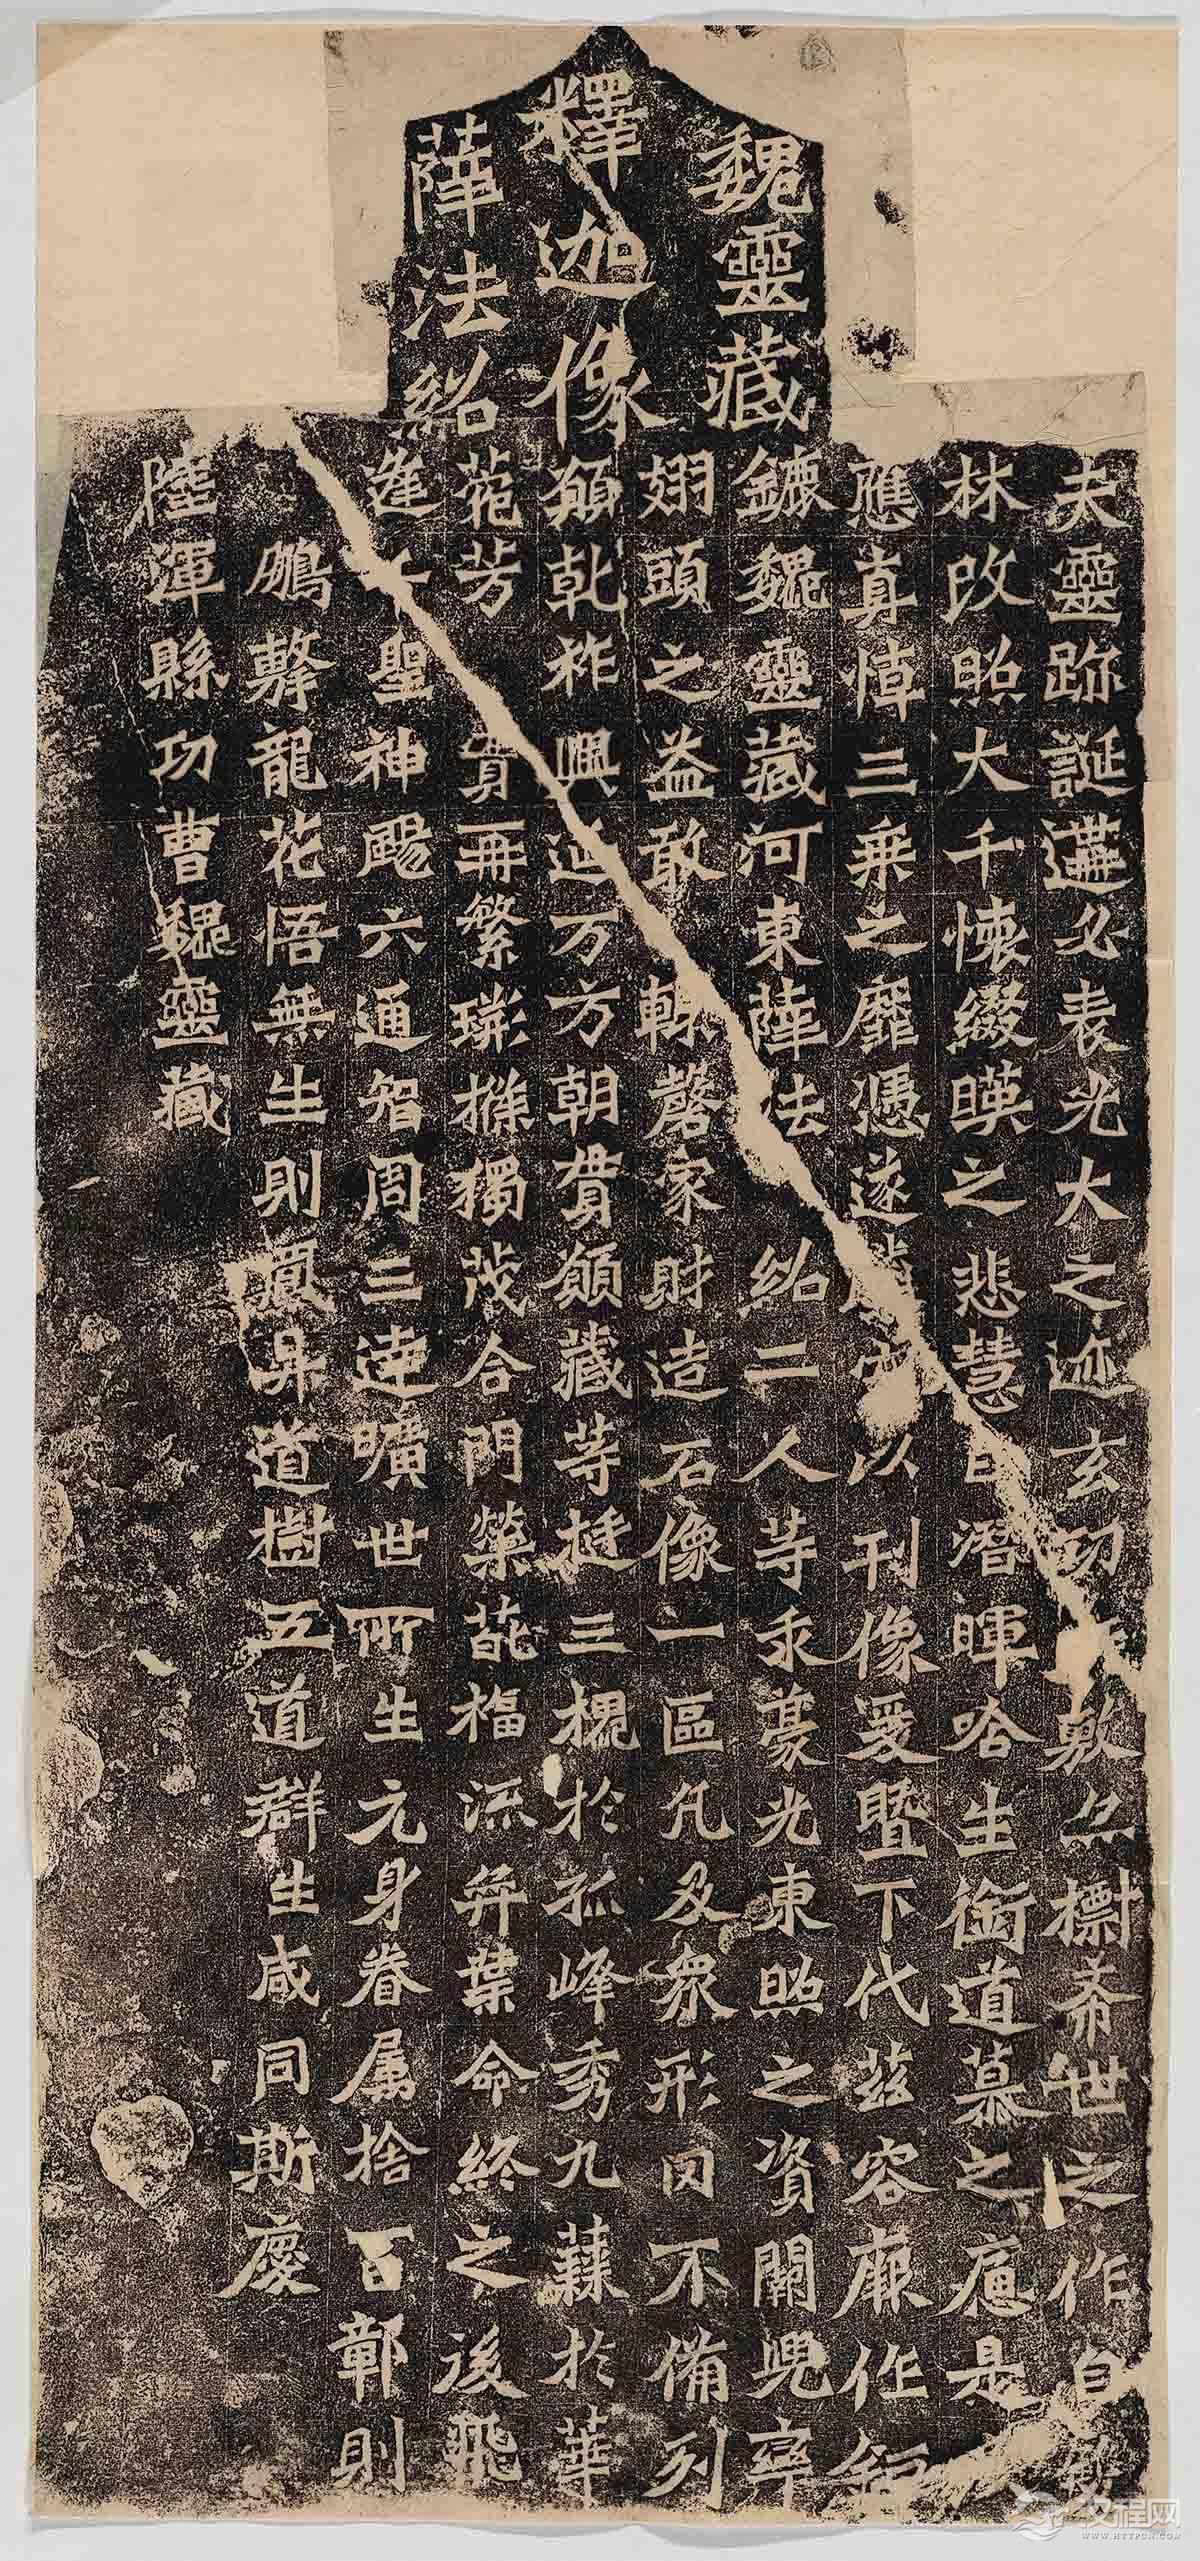 魏靈藏
釋迦像
薛法紹
夫靈跡誕遘必表光大之迹玄功既敷亦標希世之作自雙
林改照大千懷綴暎之悲慧日潛暉唅生銜道慕之慟是以
應真悼三乘之靡憑遂騰空以刊像爰暨下代茲容厥作鉅
鏕魏靈藏河東薛法紹二人等求豪光東照之資闕兜率
翅頭之益敢輒罄家財造石像一區凡及衆形罔不備列
願乾祚興延万方朝貫願藏等挺三槐於孤峰秀九蕀於華
菀芳實再繁瓅條獨茂合門榮葩福流奕葉命終之後飛
逢千聖神颺六通智周三達曠世所生元身眷属捨百鄣則
鵬擊龍花悟無生則鳳昇道樹五道群生咸同斯慶
陸渾縣功曹魏靈藏
汉程网
WWW.HTTPCN.COM